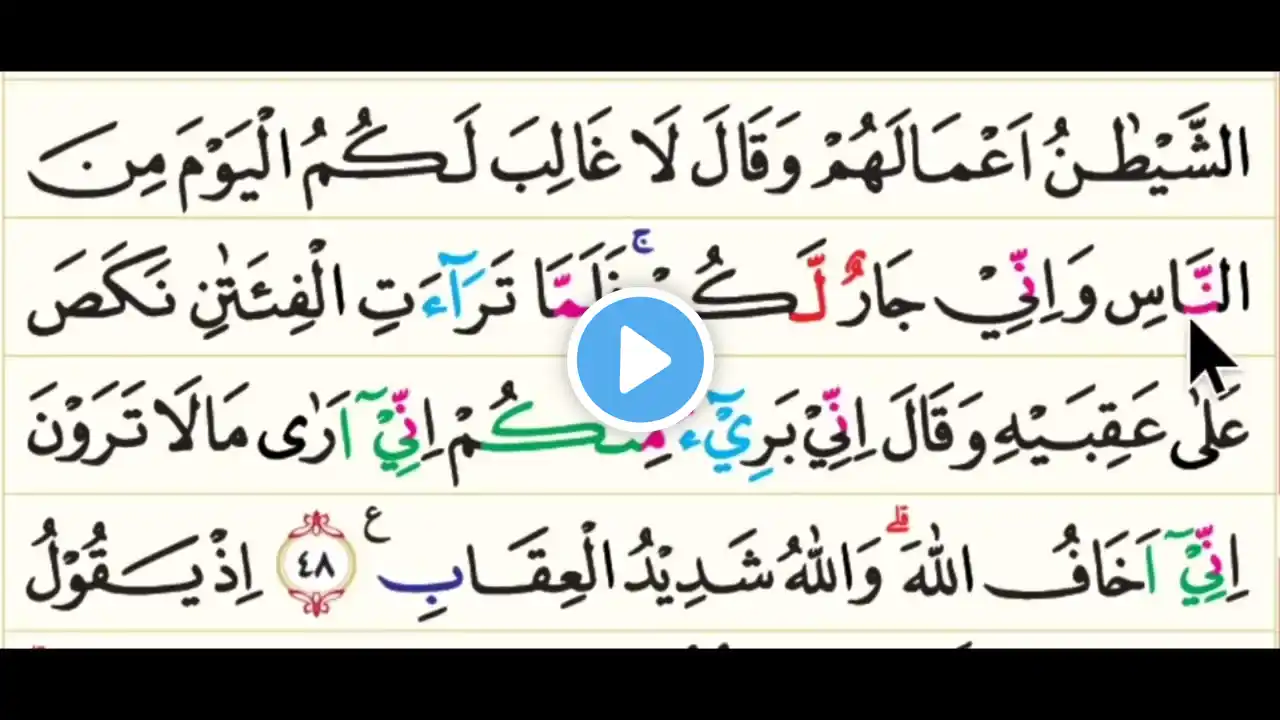 الشَّيْطٰنُ اَعْمَالَهُمْ وَقَالَ لَا غَالِبَ لَكُمُ الْيَوْمَ مِنَ
النَّاسِ وَاِنِّيْ جَارٌ لَّكُمْ ۚ فَلَمَّا تَرَاۤءَتِ الْفِئَتٰنِ نَكَصَ
عَلٰى عَقِبَيْهِ وَقَالَ اِنِّيْ بَرِيْۤءٌ مِّنْكُمْ اِنِّيْۤ اَرٰى مَالَا تَرَوْنَ
اِنِّيْۤ اَخَافُ اللّٰهَ ۗ وَاللّٰهُ شَدِيْدُ الْعِقَابِ ࣖ ٤٨ اِذْ يَقُوْلُ